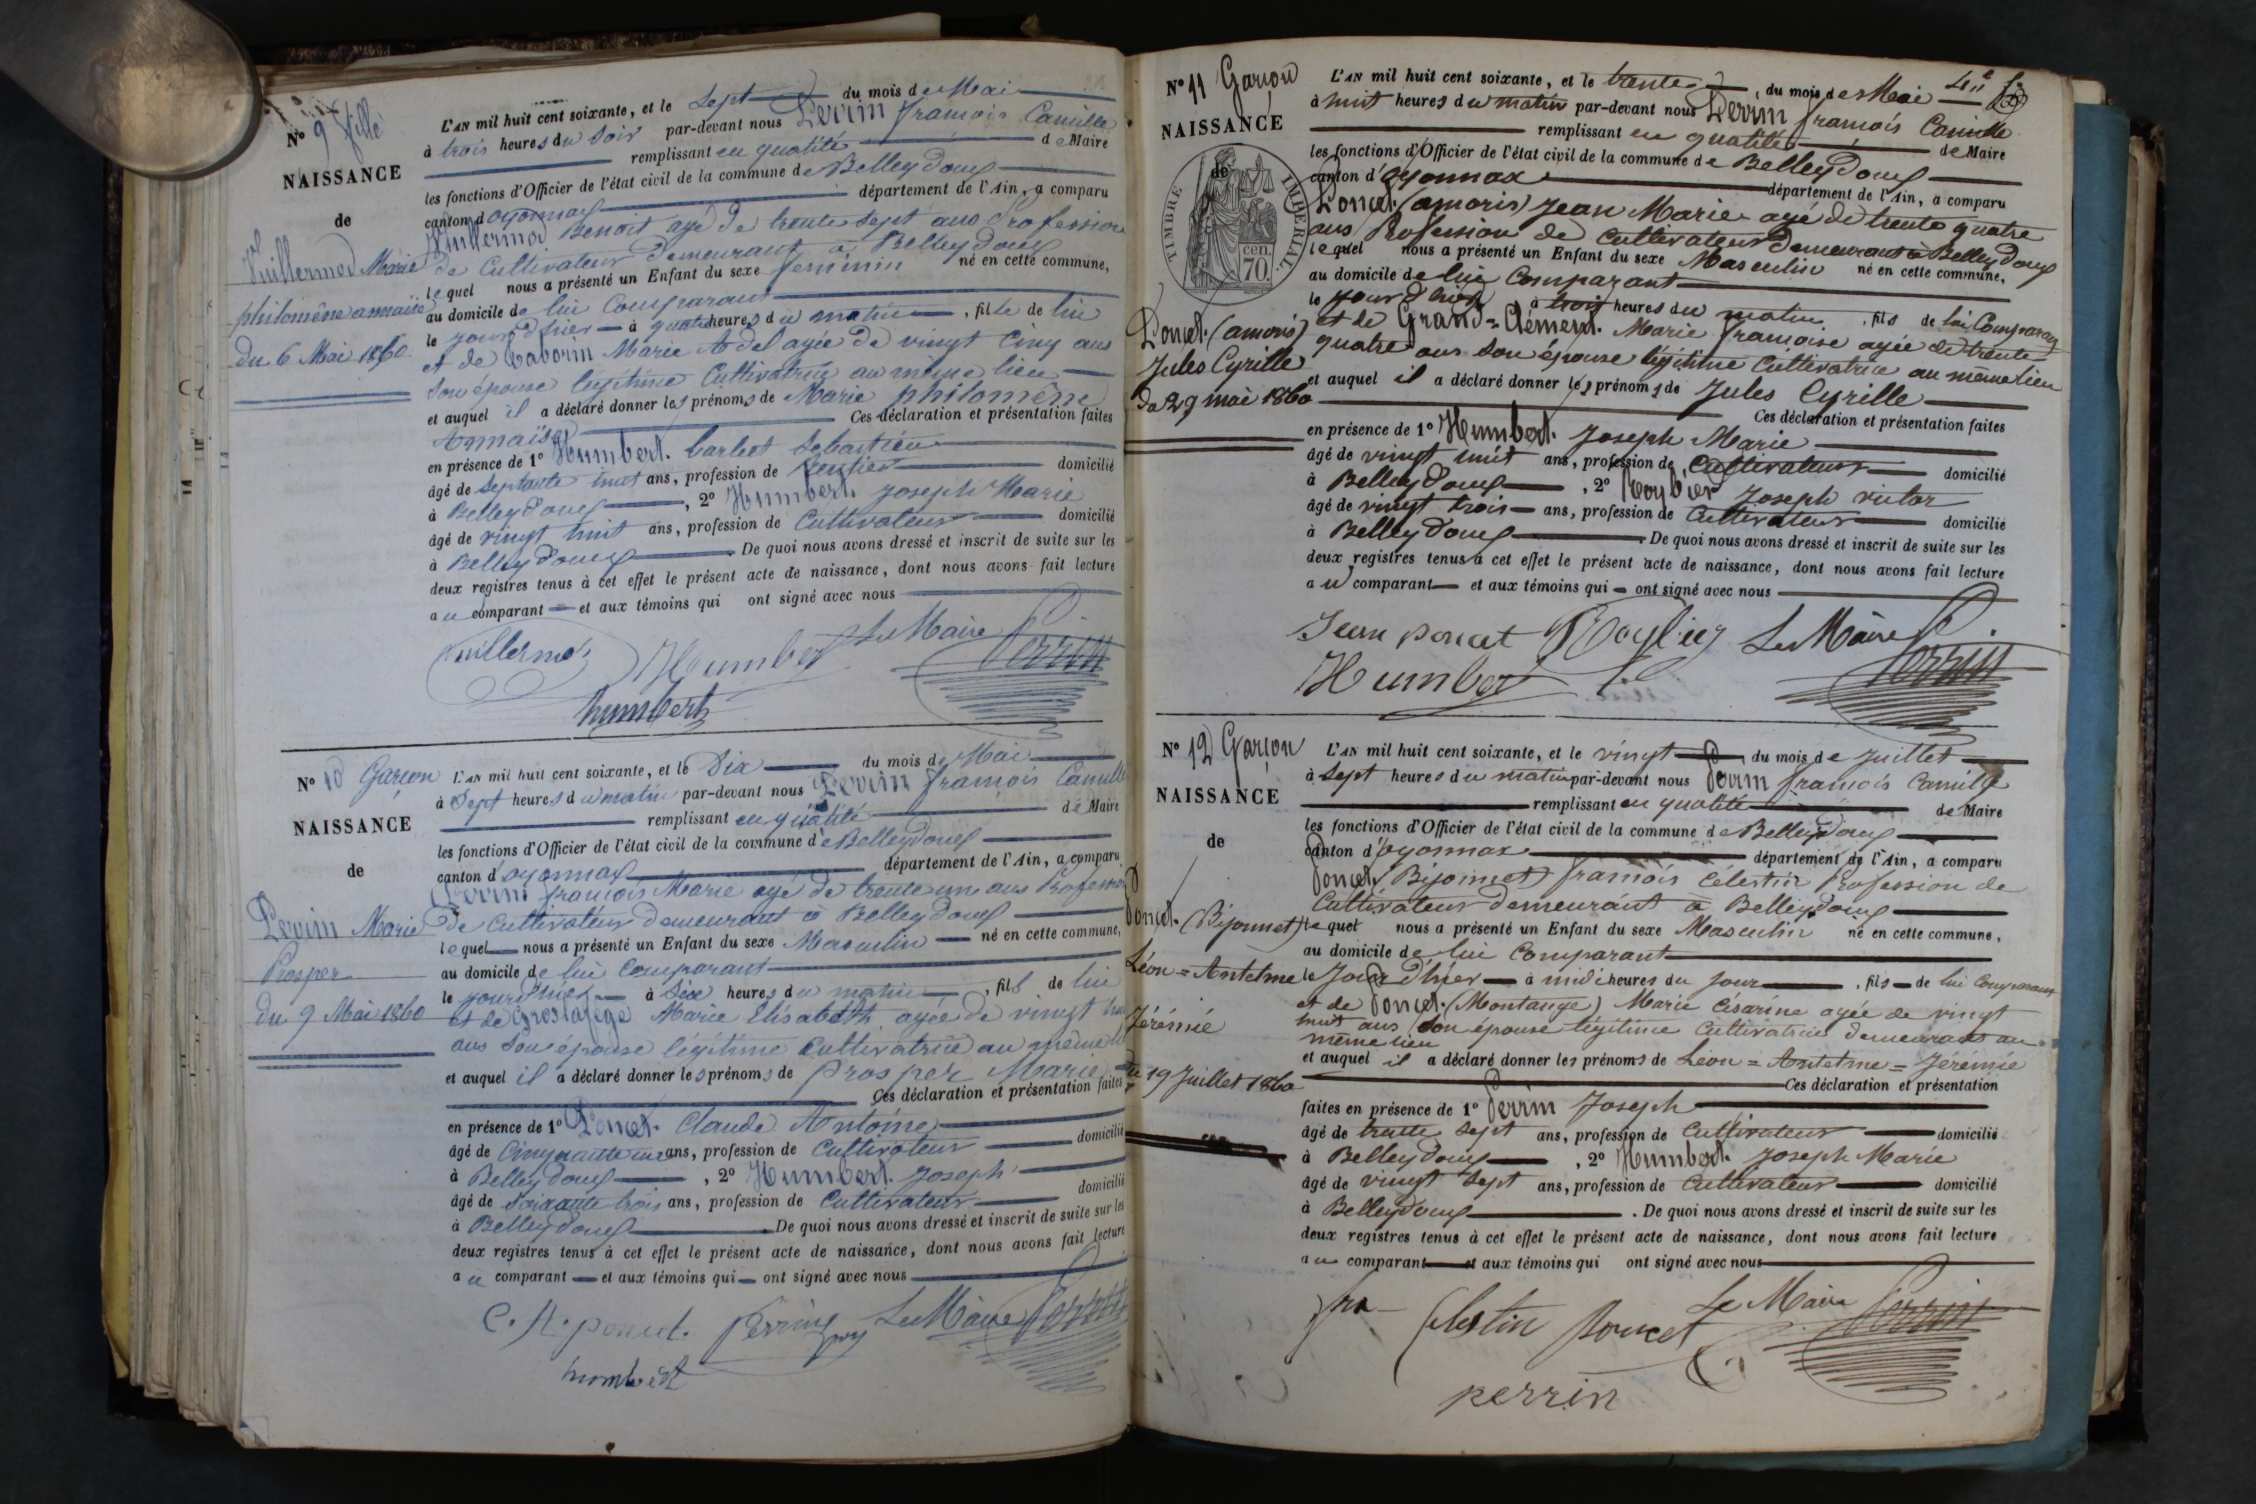 N° 9 fille
NAISSANCE
de
Vuillermod Marie
philomène annaïse
du 6 Mai 1860
L'AN mil huit cent soixante, et le sept du mois de Mai
à trois heures du soir par-devant nous Perrin françois Camille
remplissant en qualité de Maire
les fonctions d'Officier de l'état civil de la commune de Belleydoux
canton d'oyonnax département de l'Ain, a comparu
Vuillermod Benoit agé de trente sept ans Profession
de Cultivateur demeurant à Belleydoux
lequel nous a présenté un Enfant du sexe feminin né en cette commune,
au domicile de lui Comparant
le jour d'hier à quatre heures du matin, fille de lui
et de Taborin Marie Adel agée de vingt cinq ans
son épouse légitime Cultivatrice au même lieu
et auquel il a déclaré donner les prénoms de Marie philomène
Annaïse Ces déclaration et présentation faites
en présence de 1° Humbert barbet Sebastien
âgé de septante huit ans, profession de Rentier domicilié
à Belleydoux, 2° Humbert Joseph Marie
âgé de vingt huit ans, profession de Cultivateur domicilié
à Belleydoux. De quoi nous avons dressé et inscrit de suite sur les
deux registres tenus à cet effet le présent acte de naissance, dont nous avons fait lecture
au comparant et aux témoins qui ont signé avec nous
Vuillermod Humbert Le Maire Perrin
humbert
N° 10 Garçon
NAISSANCE
de
Perrin Marie
Prosper
du 9 Mai 1860
L'AN mil huit cent soixante, et le Dix du mois de Mai
à Sept heures du matin par-devant nous Perrin françois Camille
remplissant en qualité de Maire
les fonctions d'Officier de l'état civil de la commune de Belleydoux
canton d'oyonnax département de l'Ain, a comparu
Perrin françois Marie agé de trente un ans Profession
de Cultivateur demeurant à Belleydoux
lequel nous a présenté un Enfant du sexe Masculin né en cette commune,
au domicile de lui Comparant
le jour d'hier à Six heures du matin, fils de lui
et de Grostafège Marie Elisabeth agée de vingt huit
ans son épouse légitime Cultivatrice au même
et auquel il a déclaré donner les prénoms de Prosper Marie
Ces déclaration et présentation faites
en présence de 1° Poncet Claude Antoine
âgé de Cinquante un ans, profession de Cultivateur domicilié
à Belleydoux, 2° Humbert Joseph
âgé de Soixante trois ans, profession de Cultivateur domicilié
à Belleydoux. De quoi nous avons dressé et inscrit de suite sur les
deux registres tenus à cet effet le présent acte de naissance, dont nous avons fait lecture
au comparant et aux témoins qui ont signé avec nous
C. A. poncet. Perrin Le Maire Perrin
humbert
N° 11 Garçon
NAISSANCE
de
TIMBRE IMPERIAL
70 cen.
Poncet (amoris)
Jules Cyrille
Du 29 mai 1860
L'AN mil huit cent soixante, et le trente du mois de Mai
à huit heures du matin par-devant nous Perrin françois Camille
remplissant en qualité de Maire
les fonctions d'Officier de l'état civil de la commune de Belleydoux
canton d'oyonnax département de l'Ain, a comparu
Poncet (amoris) Jean Marie agé de trente quatre
ans Profession de Cultivateur demeurant à Belleydoux
lequel nous a présenté un Enfant du sexe Masculin né en cette commune,
au domicile de lui Comparant
le jour d'hier à trois heures du matin, fils de lui Comparant
et de Grand=Clément. Marie françoise agée de trente
quatre ans son épouse légitime Cultivatrice au même lieu
et auquel il a déclaré donner les prénoms de Jules Cyrille
Ces déclaration et présentation faites
en présence de 1° Humbert. Joseph Marie
âgé de vingt huit ans, profession de Cultivateur domicilié
à Belleydoux, 2° Roybier Joseph victor
âgé de vingt trois ans, profession de Cultivateur domicilié
à Belleydoux. De quoi nous avons dressé et inscrit de suite sur les
deux registres tenus à cet effet le présent acte de naissance, dont nous avons fait lecture
au comparant et aux témoins qui ont signé avec nous
Jean poncet Roybier Le Maire Perrin
Humbert
N° 12 Garçon
NAISSANCE
de
Poncet. (Bijonnet)
Léon=Antelme
Jérémie
du 19 Juillet 1860
L'AN mil huit cent soixante, et le vingt du mois de Juillet
à Sept heures du matin par-devant nous Perrin françois Camille
remplissant en qualité de Maire
les fonctions d'Officier de l'état civil de la commune de Belleydoux
canton d'oyonnax département de l'Ain, a comparu
Poncet (Bijonnet) françois Célestin Profession de
Cultivateur demeurant à Belleydoux
lequel nous a présenté un Enfant du sexe Masculin né en cette commune,
au domicile de lui Comparant
le Jour d'hier à midi heures du jour, fils de lui Comparant
et de Poncet (Montange) Marie Césarine agée de vingt
huit ans son épouse légitime Cultivatrice demeurant au
même lieu
et auquel il a déclaré donner les prénoms de Léon=Antelme=Jérémie
Ces déclaration et présentation
faites en présence de 1° Perrin Joseph
âgé de trente sept ans, profession de Cultivateur domicilié
à Belleydoux, 2° Humbert. Joseph Marie
âgé de vingt sept ans, profession de Cultivateur domicilié
à Belleydoux. De quoi nous avons dressé et inscrit de suite sur les
deux registres tenus à cet effet le présent acte de naissance, dont nous avons fait lecture
au comparant et aux témoins qui ont signé avec nous
fra Célestin Poncet Le Maire Perrin
perrin